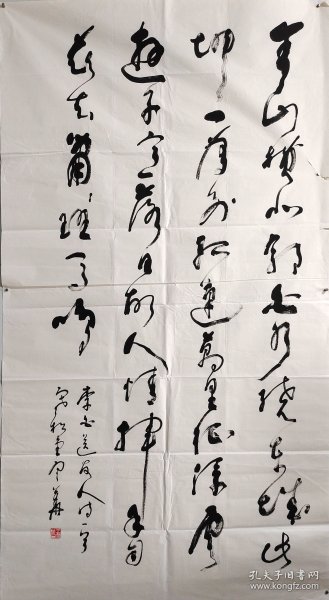 青山横北郭白水绕东城此
地一为别孤蓬萬里征浮雲
遊子意落日故人情揮手自
兹去蕭々班马鸣
李白送友人诗一首
孔夫子旧书网